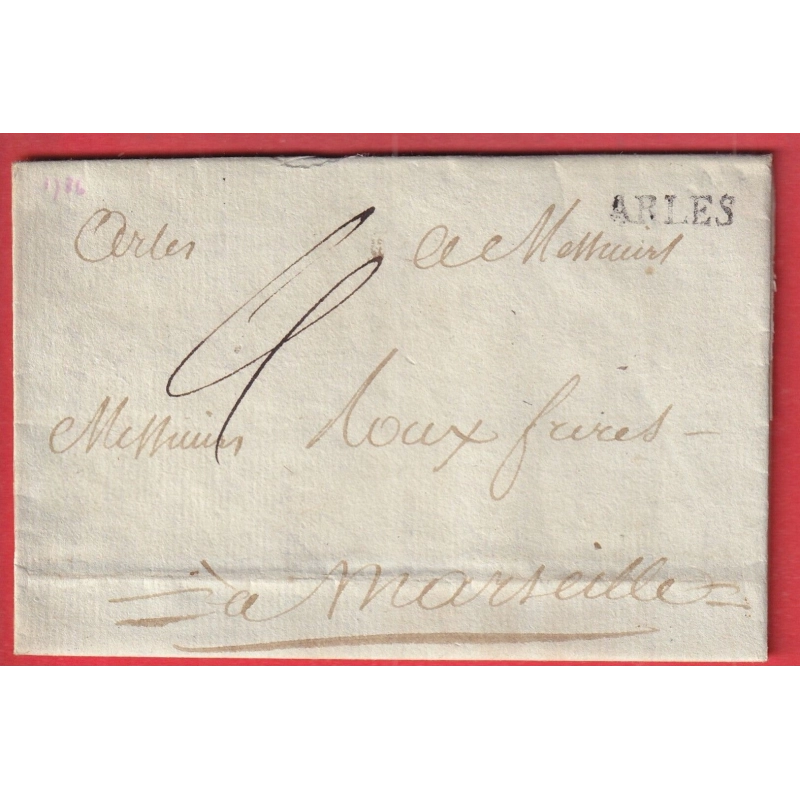 1786
ARLES
Arles A Messieurs
4
Messieurs Roux freres
à Marseille